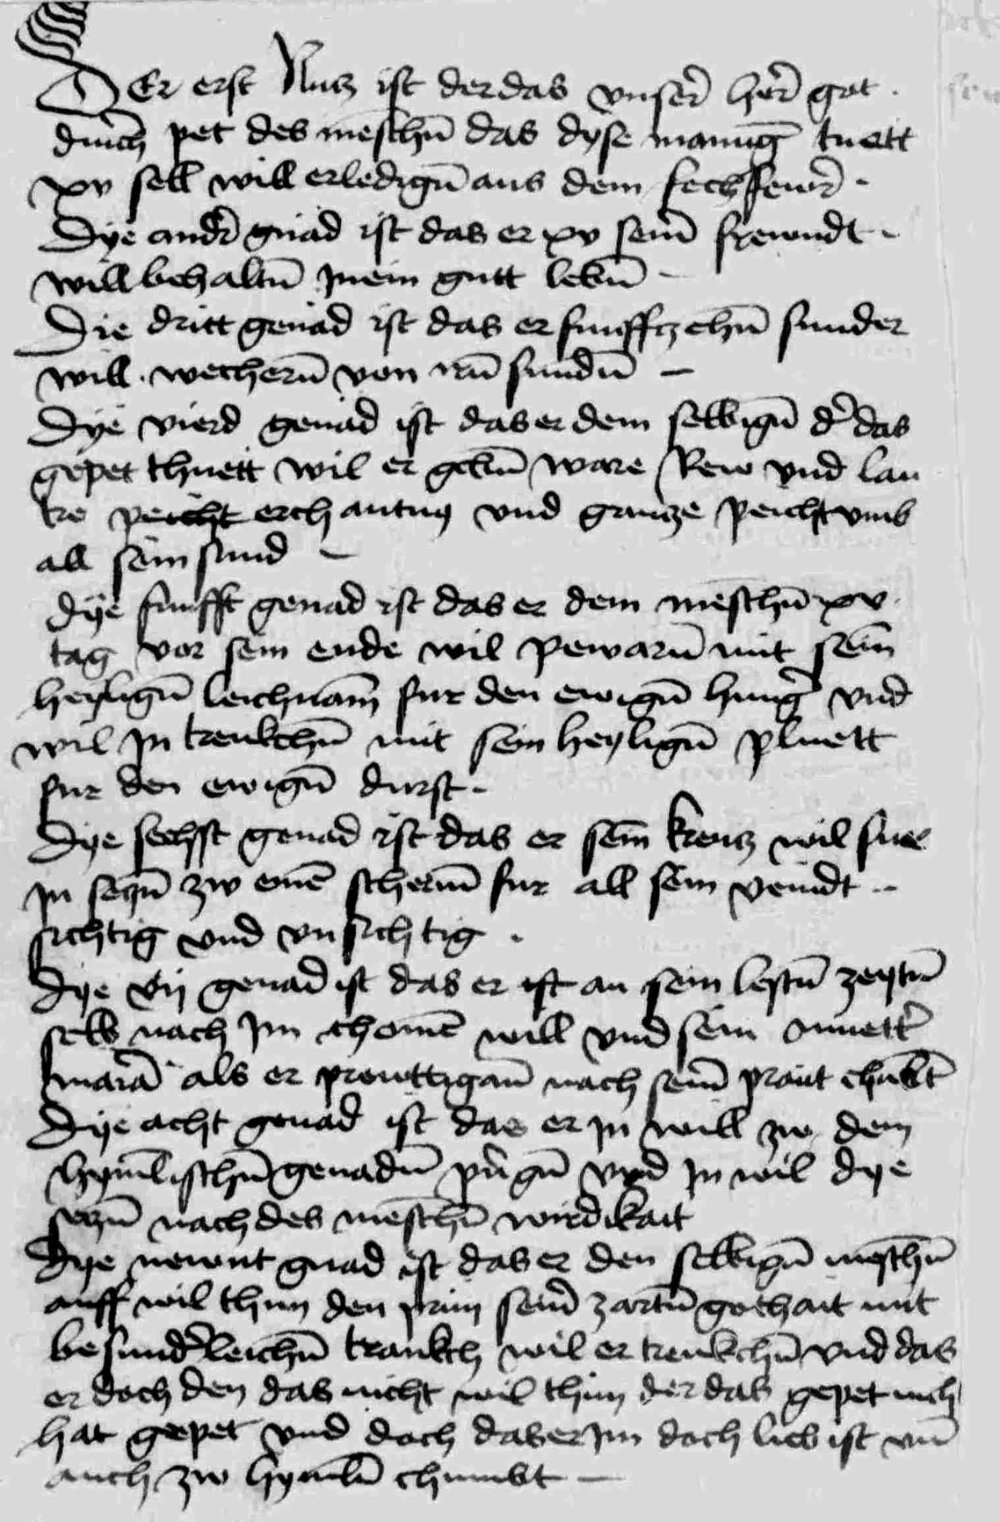 Der erst Nutz ist der das vnser̄ her̄ got .
durch pet des mēschn̄ das dyse manūg tuett
xv sell will erledign̄ aus dem fechfewr̄ .
Dye andr̄ gnad ist das er xv seiñ frewndt -
will behaltn̄ jn ein gutt lebn̄ -
Die dritt genad ist das er funffzehn̄ sunder
will . wechern̄ von irn̄ sundn̄ -
Dye vierd genad ist das er dem selbign̄ d̄ das
gepet thuett wil er gebn̄ ware Rew vnd lau
tre peicht erchantnus vnd gantze peicht vmb
all sein sund -
dye funfft genad ist das er dem mēschn̄ xv .
tag vor sein ende wil pewarn̄ mit sein̄
heylign̄ leichnam̄ fur den ewign̄ hunḡ vnd
wil jn trenkchn̄ mit sein heylign̄ pluett
fur den ewign̄ durst -
Dye sechst genad ist das er sein̄ krewtz wil fur
jn seczn̄ zw einē scherm̄ fur all sein veindt -
sichtig vnd vnsichtig .
Dye vij genad ist das er ist an sein lestn̄ zeytn̄
selb nach jm chomē will vnd sein muettr̄
mariā als er prewttigan̄ nach sein̄ praut chūbt
Dye acht genad ist das er jn will zw dem
hyml̄ischn̄ genadn̄ pr̄gn̄ vnd jn wil dye
seczn̄ nach des mēschn̄ wirdikait
Dye newnt gnad ist das er den selbign̄ mēschn̄
auff wil thun den prun sein̄ zartn̄ gothait mit
besundr̄leichn̄ trankch wil er trenkchn̄ vnd das
er doch den das nicht wil thun der das gepet nich
hat gepet vnd doch das er jm doch lieb ist vn̄
auch zw hyml̄ chumbt -